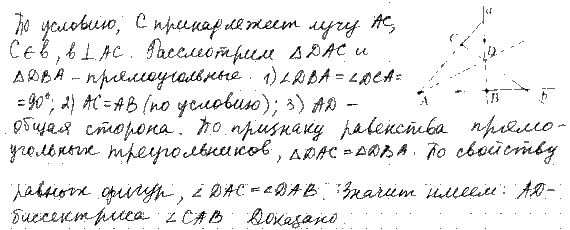 По условию, С принадлежит лучу АС,
С∈в, в⊥АС. Рассмотрим △DAC и
△DBA - прямоугольные. 1) ∠DBA = ∠DCA =
= 90°; 2) AC = AB (по условию); 3) AD -
общая сторона. По признаку равенства прямо-
угольных треугольников, △DAC = △DBA. По свойству
равных фигур, ∠DAC = ∠DAB. Значит имеем: AD-
биссектриса ∠CAB Доказано.
a
C
D
A
B